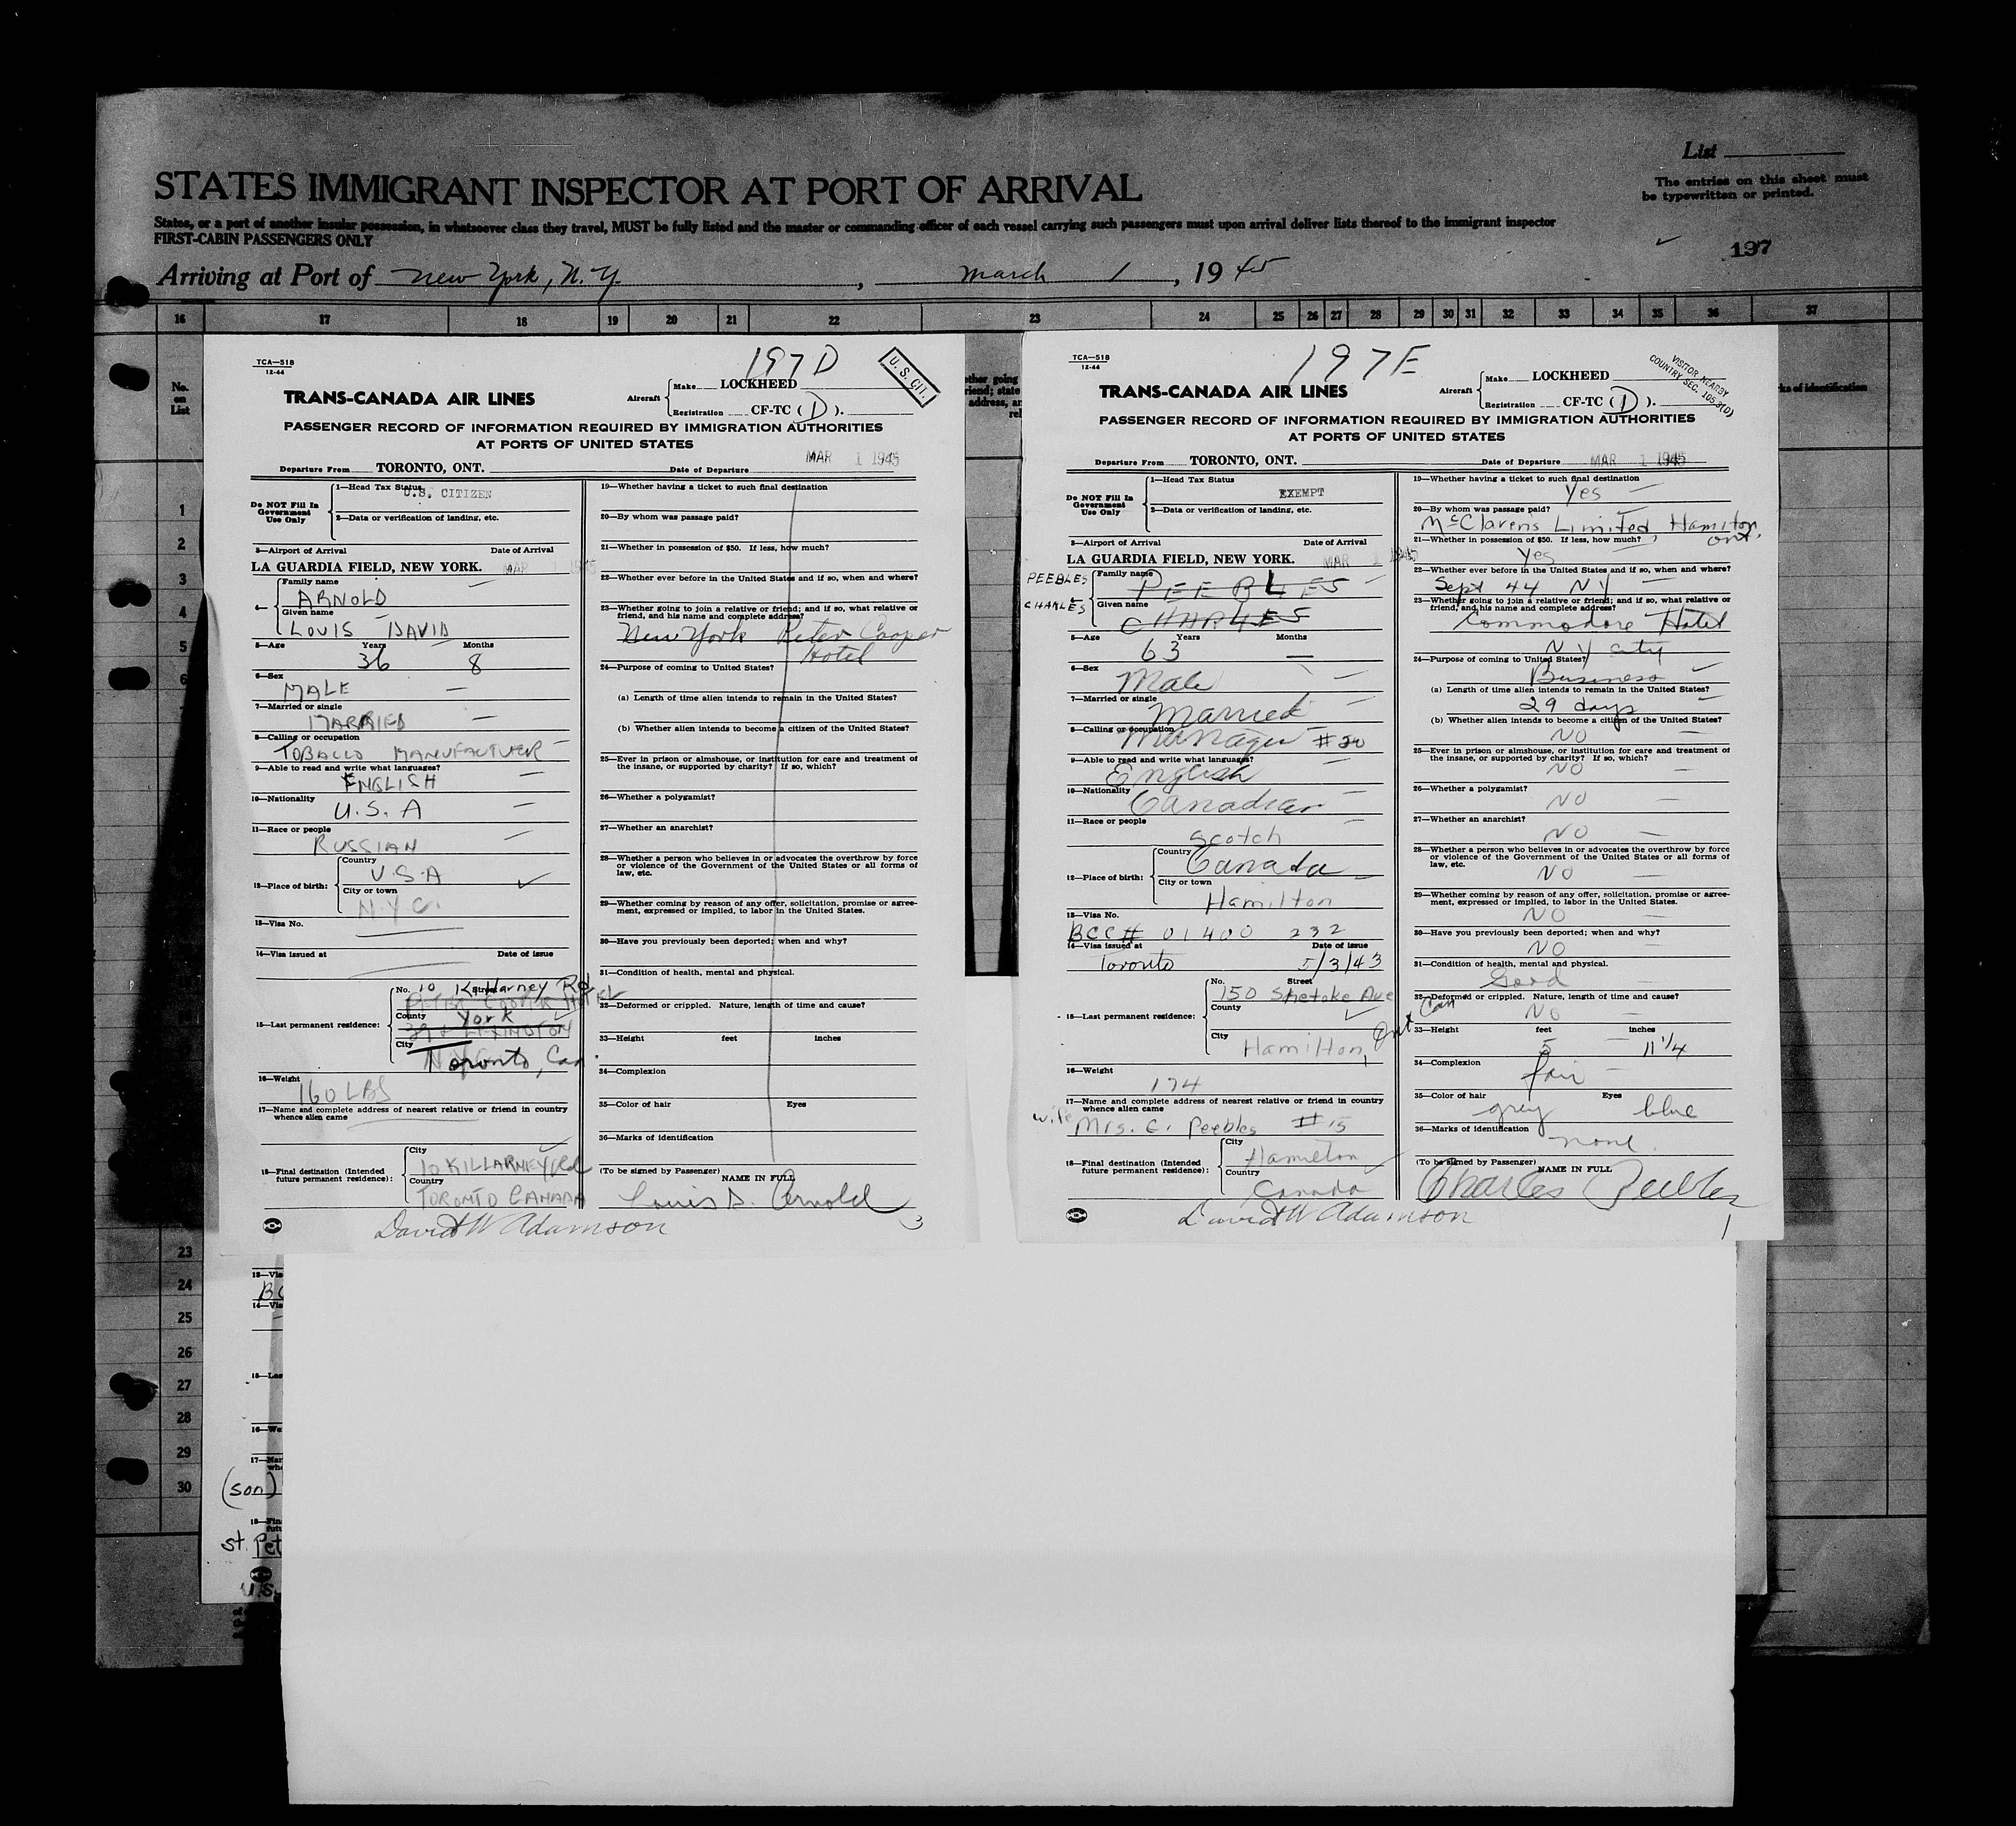 List
The entries on this sheet must
be typewritten or printed.
STATES IMMIGRANT INSPECTOR AT PORT OF ARRIVAL
States, or a part of another insular possession, in whatsoever class they travel, MUST be fully listed and the master or commanding officer of each vessel carrying such passengers must upon arrival deliver lists thereof to the immigrant inspector
FIRST-CABIN PASSENGERS ONLY
197
Arriving at Port of New York, N.Y., March 1, 1945
16 17 18 19 20 21 22 23 24 25 26 27 28 29 30 31 32 33 34 35 36 37
No.
on
List
1
2
3
4
5
6
TCA—518
12-44
197 D
U. S. CIT.
TRANS-CANADA AIR LINES
Aircraft
Make LOCKHEED
Registration CF-TC ( D ).
PASSENGER RECORD OF INFORMATION REQUIRED BY IMMIGRATION AUTHORITIES
AT PORTS OF UNITED STATES
Departure From TORONTO, ONT. Date of Departure MAR 1 1945
Do NOT Fill In
Government
Use Only
1—Head Tax Status U.S. CITIZEN
2—Data or verification of landing, etc.
3—Airport of Arrival Date of Arrival
LA GUARDIA FIELD, NEW YORK. MAR 1 1945
4—
Family name
ARNOLD
Given name
LOUIS DAVID
5—Age Years Months
36 8
6—Sex
MALE
7—Married or single
MARRIED
8—Calling or occupation
TOBACCO MANUFACTURER
9—Able to read and write what languages?
ENGLISH
10—Nationality
U.S.A
11—Race or people
RUSSIAN
12—Place of birth:
Country
U.S.A
City or town
N.Y.C.
13—Visa No.
14—Visa issued at Date of issue
15—Last permanent residence:
No. Street
10 Killarney Rd
PETER COOPER HOTEL
County
York
LEXINGTON
City
Toronto, Can.
16—Weight
160 LBS
17—Name and complete address of nearest relative or friend in country
whence alien came
18—Final destination (Intended
future permanent residence):
City
10 KILLARNEY Rd
Country
TORONTO CANADA
David W Adamson
19—Whether having a ticket to such final destination
20—By whom was passage paid?
21—Whether in possession of $50. If less, how much?
22—Whether ever before in the United States and if so, when and where?
23—Whether going to join a relative or friend; and if so, what relative or
friend, and his name and complete address?
New York Peter Cooper
Hotel
24—Purpose of coming to United States?
(a) Length of time alien intends to remain in the United States?
(b) Whether alien intends to become a citizen of the United States?
25—Ever in prison or almshouse, or institution for care and treatment of
the insane, or supported by charity? If so, which?
26—Whether a polygamist?
27—Whether an anarchist?
28—Whether a person who believes in or advocates the overthrow by force
or violence of the Government of the United States or all forms of
law, etc.
29—Whether coming by reason of any offer, solicitation, promise or agree-
ment, expressed or implied, to labor in the United States.
30—Have you previously been deported; when and why?
31—Condition of health, mental and physical.
32—Deformed or crippled. Nature, length of time and cause?
33—Height feet inches
34—Complexion
35—Color of hair Eyes
36—Marks of identification
(To be signed by Passenger)
NAME IN FULL
Louis D. Arnold
3
TCA—518
12-44
197 E
VISITOR NEARBY
COUNTRY SEC. 105.3(D)
TRANS-CANADA AIR LINES
Aircraft
Make LOCKHEED
Registration CF-TC ( D ).
PASSENGER RECORD OF INFORMATION REQUIRED BY IMMIGRATION AUTHORITIES
AT PORTS OF UNITED STATES
Departure From TORONTO, ONT. Date of Departure MAR 1 1945
Do NOT Fill In
Government
Use Only
1—Head Tax Status
EXEMPT
2—Data or verification of landing, etc.
3—Airport of Arrival Date of Arrival
LA GUARDIA FIELD, NEW YORK. MAR 1 1945
PEEBLES
CHARLES
Family name
PEEBLES
Given name
CHARLES
5—Age Years Months
63 —
6—Sex
Male
7—Married or single
Married
8—Calling or occupation
Manager #20
9—Able to read and write what languages?
English
10—Nationality
Canadian
11—Race or people
Scotch
12—Place of birth:
Country
Canada
City or town
Hamilton
13—Visa No.
BCC # 01400 232
14—Visa issued at Date of issue
Toronto 5/3/43
15—Last permanent residence:
No. Street
150 Ave
County
City
Hamilton, Ont Can
16—Weight
174
17—Name and complete address of nearest relative or friend in country
whence alien came
wife Mrs. C. Peebles #15
18—Final destination (Intended
future permanent residence):
City
Hamilton
Country
Canada
David W Adamson
19—Whether having a ticket to such final destination
Yes
20—By whom was passage paid?
McClarens Limited Hamilton
Ont.
21—Whether in possession of $50. If less, how much?
Yes
22—Whether ever before in the United States and if so, when and where?
Sept 44 NY
23—Whether going to join a relative or friend; and if so, what relative or
friend, and his name and complete address?
Commodore Hotel
NY city
24—Purpose of coming to United States?
Business
(a) Length of time alien intends to remain in the United States?
29 days
(b) Whether alien intends to become a citizen of the United States?
NO
25—Ever in prison or almshouse, or institution for care and treatment of
the insane, or supported by charity? If so, which?
NO
26—Whether a polygamist?
NO
27—Whether an anarchist?
NO
28—Whether a person who believes in or advocates the overthrow by force
or violence of the Government of the United States or all forms of
law, etc.
NO
29—Whether coming by reason of any offer, solicitation, promise or agree-
ment, expressed or implied, to labor in the United States.
NO
30—Have you previously been deported; when and why?
NO
31—Condition of health, mental and physical.
Good
32—Deformed or crippled. Nature, length of time and cause?
No
33—Height feet inches
5 11 1/4
34—Complexion
fair
35—Color of hair Eyes
grey blue
36—Marks of identification
none
(To be signed by Passenger)
NAME IN FULL
Charles Peebles
1
23
24
25
26
27
28
29
30
(son)
st. Pet
U.S.